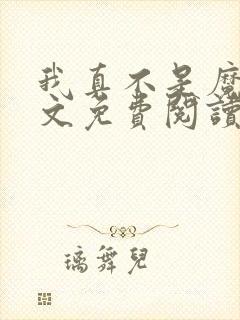 我真不是魔
文免費閱讀
璃舞兒